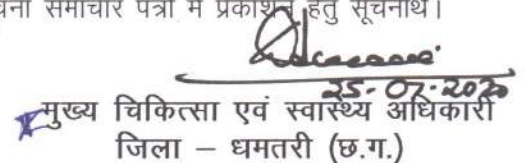 समाचार पत्रों में प्रकाशन हेतु सूचनार्थ।
25-07-2020
मुख्य चिकित्सा एवं स्वास्थ्य अधिकारी
जिला – धमतरी (छ.ग.)